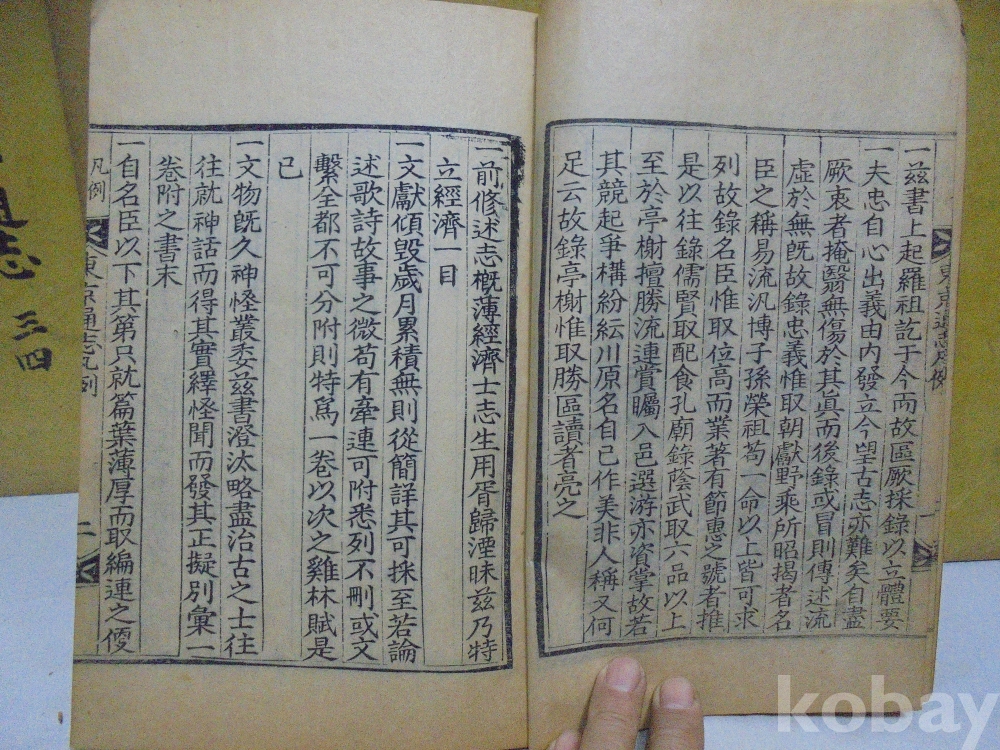 一兹書上起羅祖訖于今而故區厥採錄以立體要
一夫忠自心出義由內發立今望古志亦難矣自盡
厥衷者掩翳無傷於其眞而後錄或冒則傳述流
虛於無旣故錄忠義惟取朝獻野乘所昭揭者名
臣之稱易流汎博子孫榮祖苟一命以上皆可求
列故錄名臣惟取位高而業著有節惠之號者推
是以往錄儒賢取配食孔廟錄蔭武取六品以上
至於亭榭擅勝流連賞矚入邑選游亦資掌故若
其競起爭構紛紜川原名自已作美非人稱又何
足云故錄亭榭惟取勝區讀者亮之
東京通志凡例
一
一前修述志槪薄經濟士志生用胥歸湮昧兹乃特
立經濟一目
一文獻傾毁歲月累積無則從簡詳其可採至若論
述歌詩故事之微苟有牽連可附悉列不刪或文
繫全都不可分附則特爲一卷以次之雞林賦是
已
一文物旣久神怪叢委兹書澄汰略盡治古之士往
往就神話而得其實繹怪聞而發其正擬別彙一
卷附之書末
一自名臣以下其第只就篇葉薄厚而取編連之便
凡例
東京通志凡例
二
通志 三四
kobay